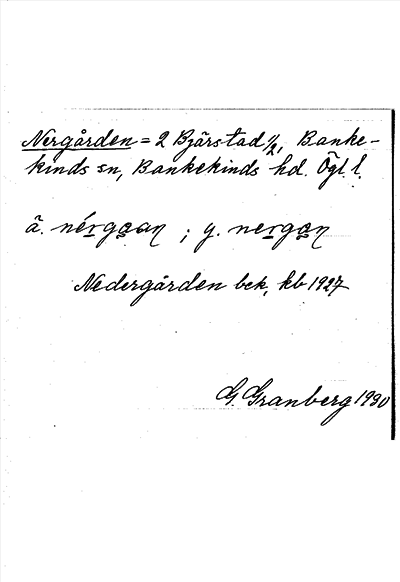 Nergården = 2 Bjärstad 1/2, Banke-
kinds sn, Bankekinds hd. Ögl. l.
ä. nérgɑɑn ; y. nergɑn
Nedergården bek, kb 1927
G. Granberg 1930